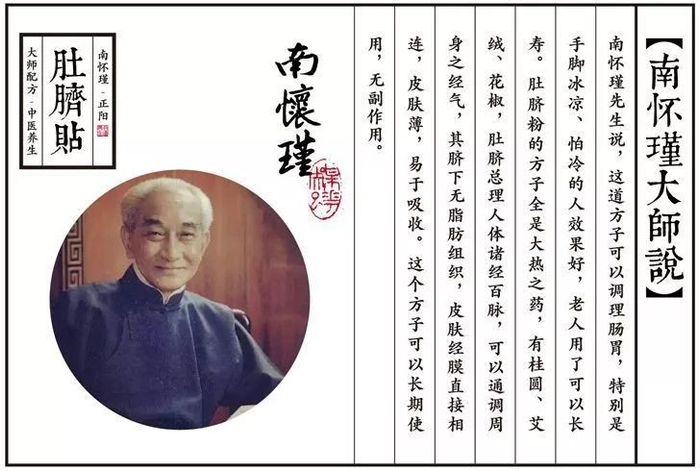 【南怀瑾大師說】
南怀瑾先生说，这道方子可以调理肠胃，特别是
手脚冰凉、怕冷的人效果好，老人用了可以长
寿。肚脐粉的方子全是大热之药，有桂圆、艾
绒、花椒，肚脐总理人体诸经百脉，可以通调周
身之经气，其脐下无脂肪组织，皮肤经膜直接相
连，皮肤薄，易于吸收。这个方子可以长期使
用，无副作用。
南懷瑾
南怀瑾-正阳
肚臍貼
大师配方-中医养生